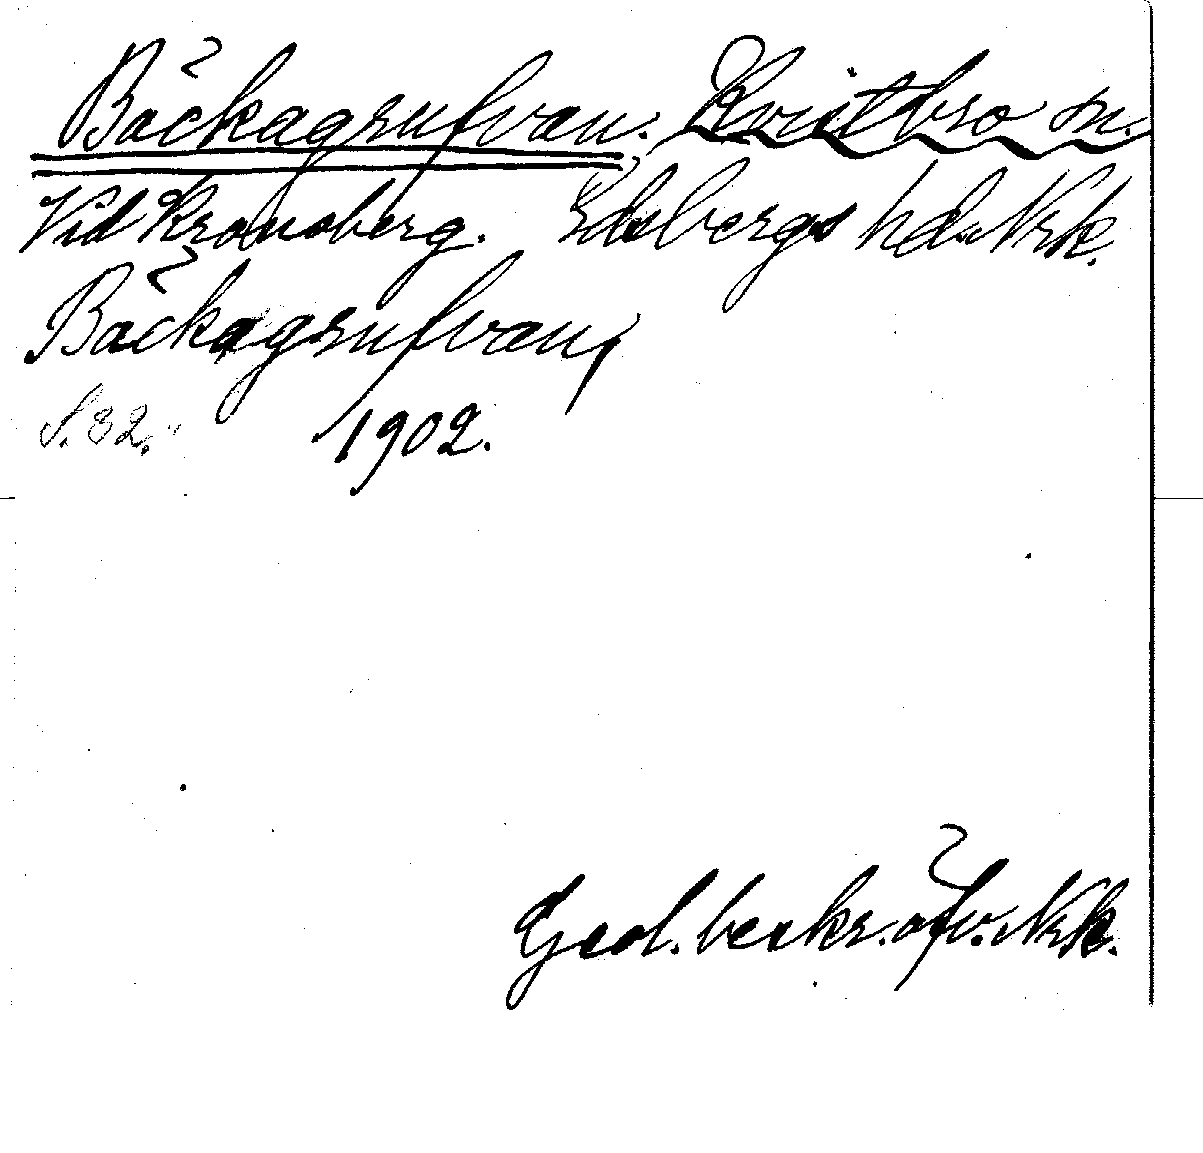 Bäckagrufvan. Kvistbro sn.
Vid Kronoberg. Edsbergs hd. Nrk.
Bäckagrufvan,
S. 32. 1902.
Geol. beskr. öfv. Nrk.